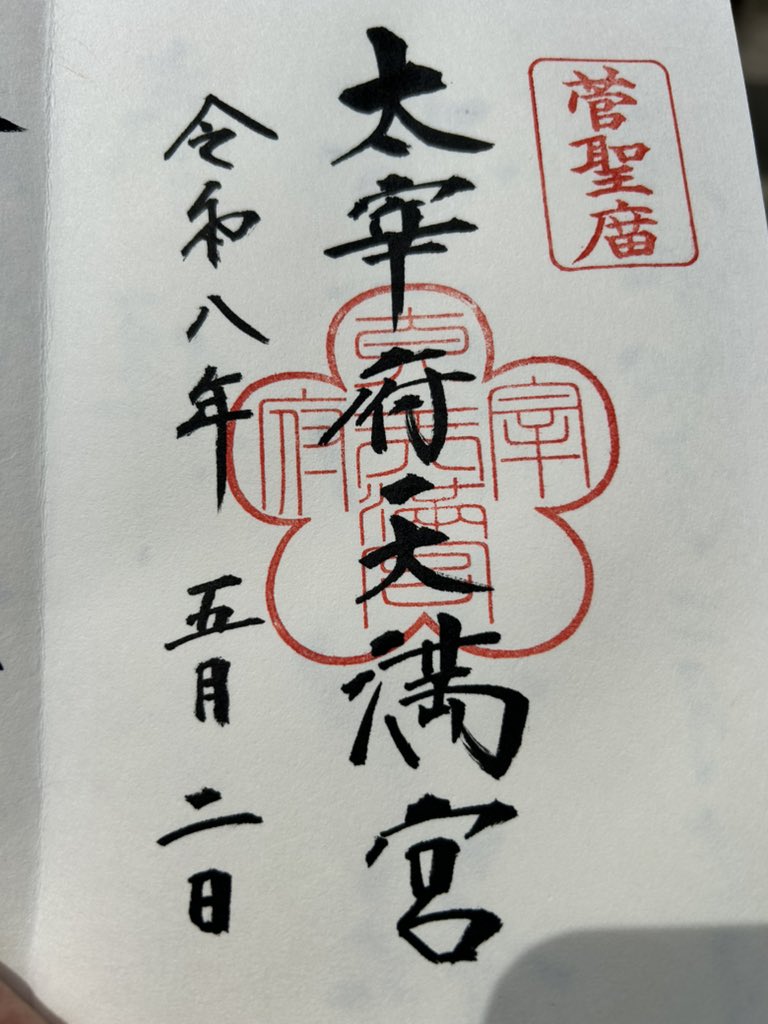 菅聖庿
太宰府天満宮
宰
府
令和八年 五月 二日